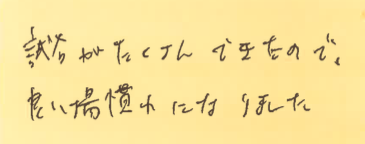 試合がたくさんできたので、
良い場慣れになりました